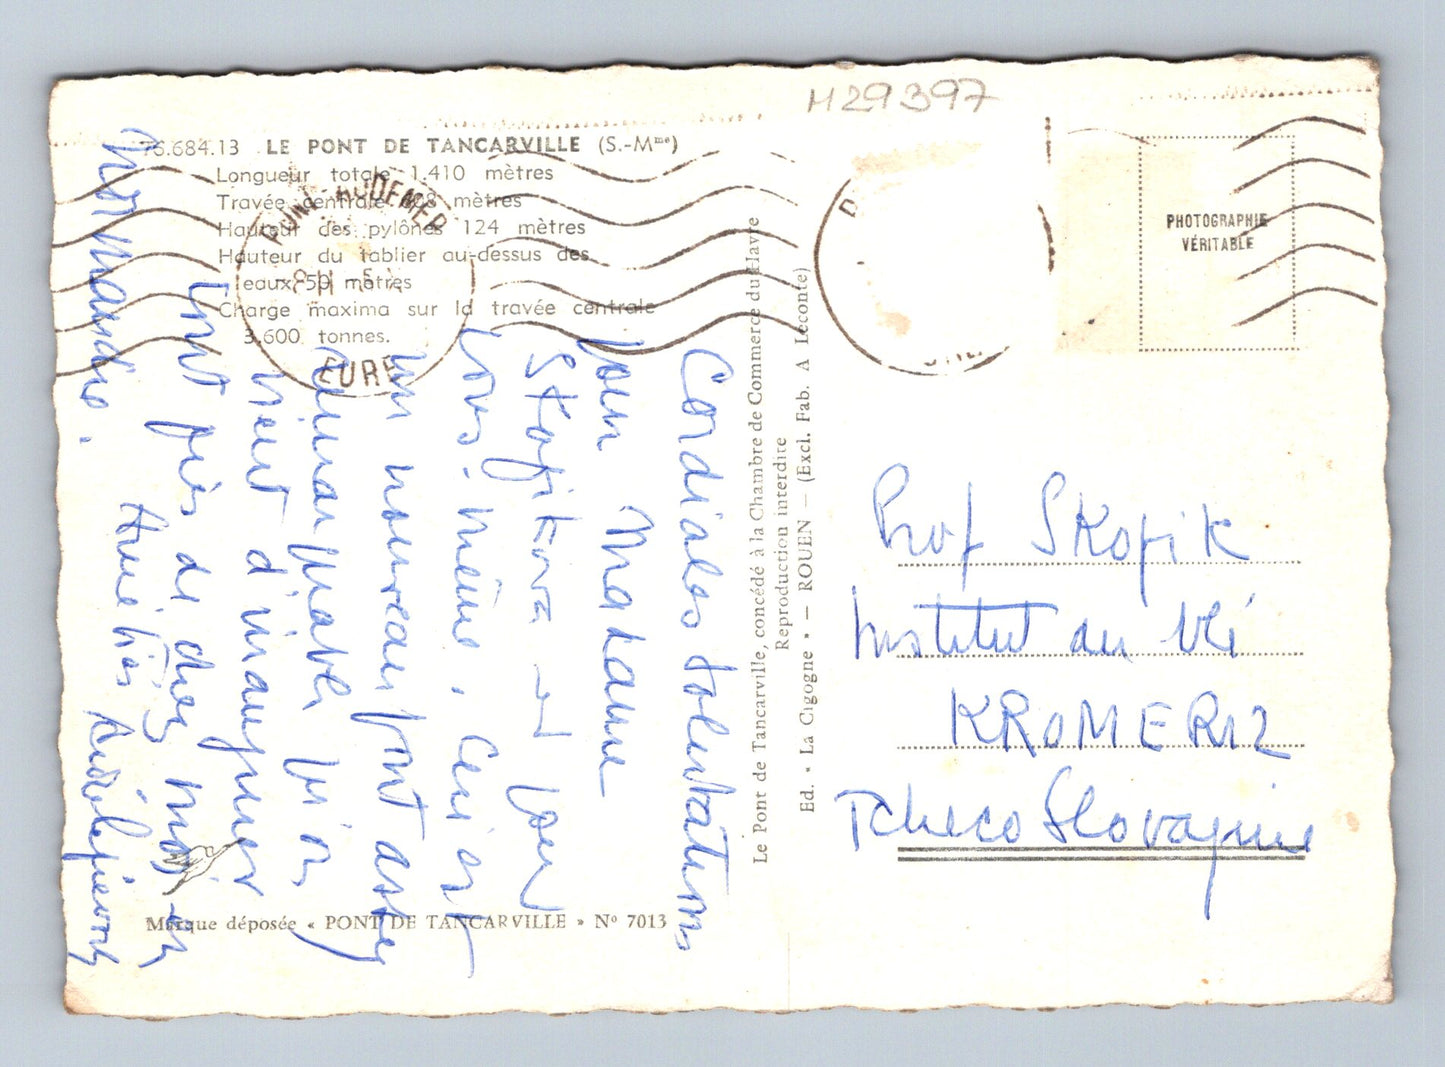 H29397
76.684.13 LE PONT DE TANCARVILLE (S.-Mme)
Longueur totale 1.410 mètres
Travée centrale 608 mètres
Hauteur des pylônes 124 mètres
Hauteur du tablier au-dessus des
eaux 50 mètres
Charge maxima sur la travée centrale
3.600 tonnes.
PONT-AUDEMER
EURE
Cordiales salutations
pour Madame
Skopikova et pour
vous-même. Ceci est
un nouveau pont assez
remarquable qu'on
vient d'inaugurer
tout près de chez moi, en
Normandie.
Marque déposée « PONT DE TANCARVILLE » No 7013
Le Pont de Tancarville, concédé à la Chambre de Commerce du Havre
Reproduction interdite
Ed. • La Cigogne • — ROUEN — (Excl. Fab. A Leconte)
PHOTOGRAPHIE
VÉRITABLE
Prof Skopik
Institut du blé
KROMERIZ
Tchecoslovaquie